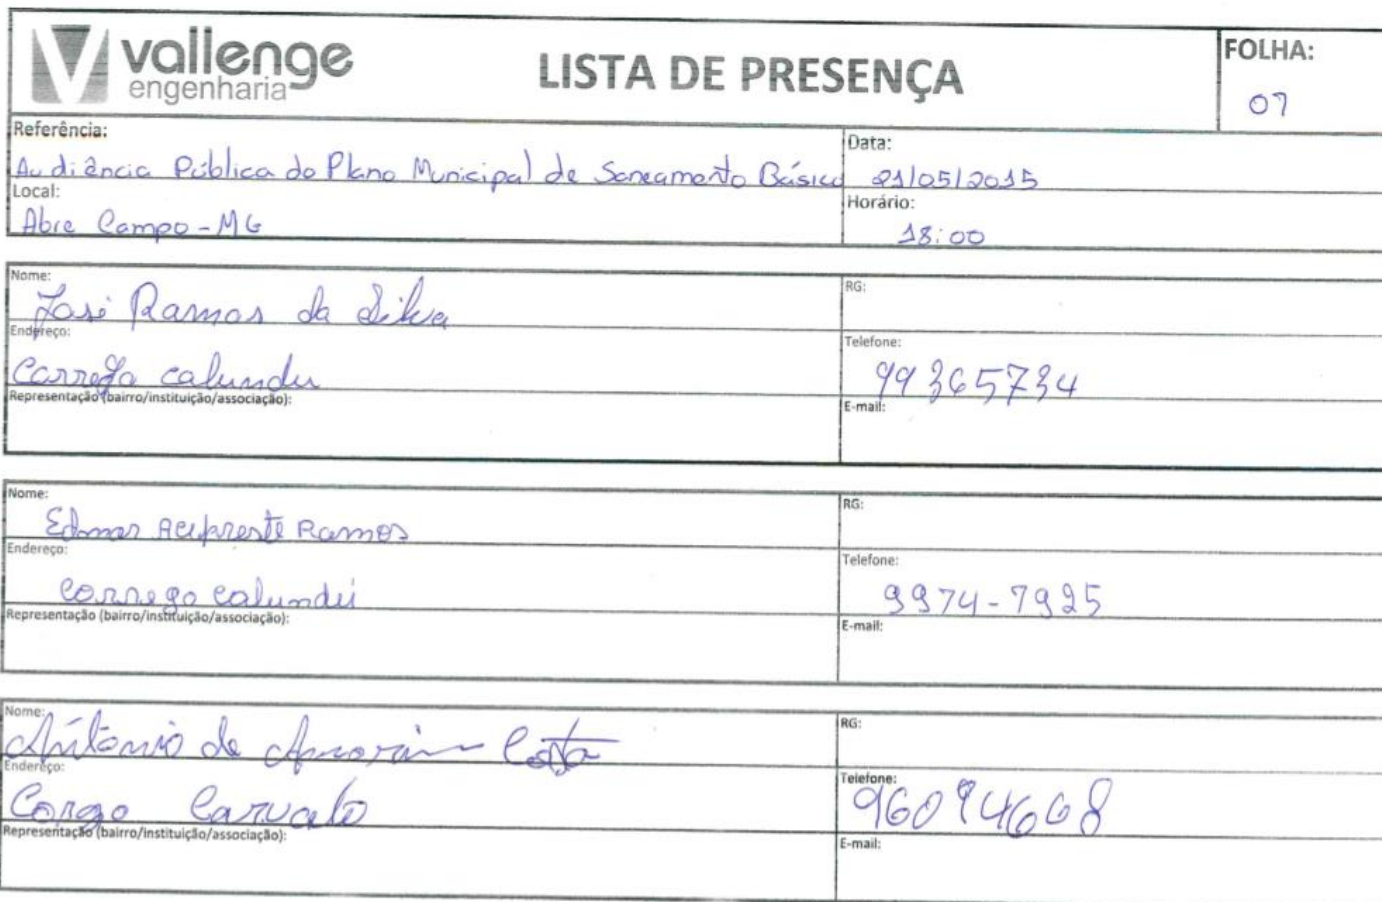 vallenge
engenharia
LISTA DE PRESENÇA
FOLHA:
07
Referência:
Audiência Pública do Plano Municipal de Saneamento Básico
Data:
21/05/2015
Local:
Abre Campo - MG
Horário:
18:00
Nome:
José Ramos da Silva
RG:
Endereço:
Carrego calundu
Telefone:
99365734
Representação (bairro/instituição/associação):
E-mail:
Nome:
Edmar Ramos
RG:
Endereço:
Correго calundú
Telefone:
9974-7925
Representação (bairro/instituição/associação):
E-mail:
Nome:
Antonio de Amorim Costa
RG:
Endereço:
Corgo Carvalo
Telefone:
96094668
Representação (bairro/instituição/associação):
E-mail: